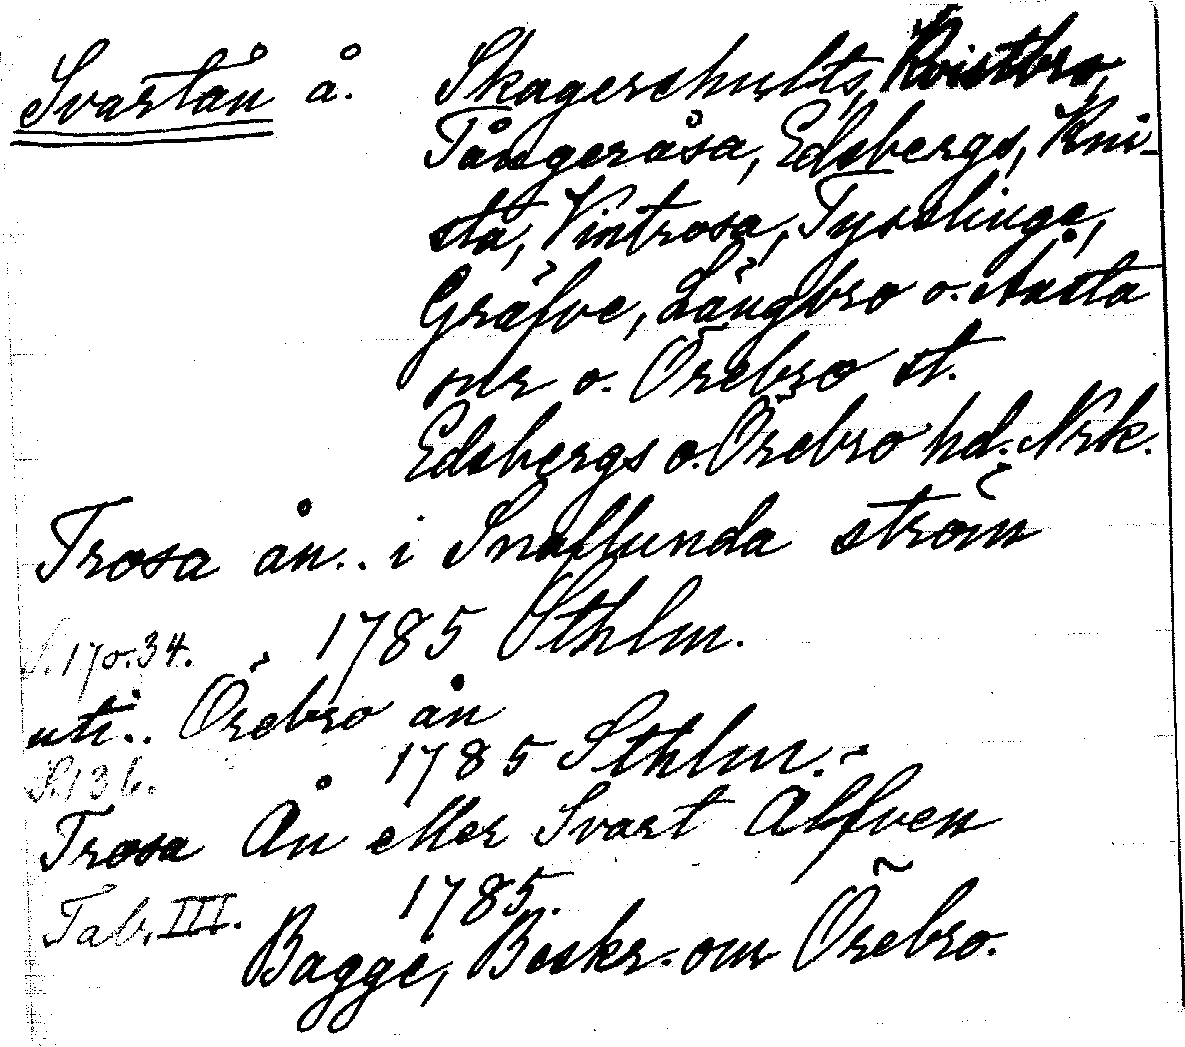 Svartån å. Skagershults, Kvistbro,
Tångeråsa, Edsbergs, Kni-
sta, Vintrosa, Tysslinge,
Gräfve, Längbro o. Nästa
snr o. Örebro st.
Edsbergs o. Örebro hd. Nrk.
Trosa ån .. i Snaflunda ström
S. 17 o. 34. 1785 Sthlm.
uti .. Örebro ån
S. 136. 1785 Sthlm. –
Trosa Ån eller Svart Älfven
Tab. III. 1785.
Bagge, Beskr. om Örebro.